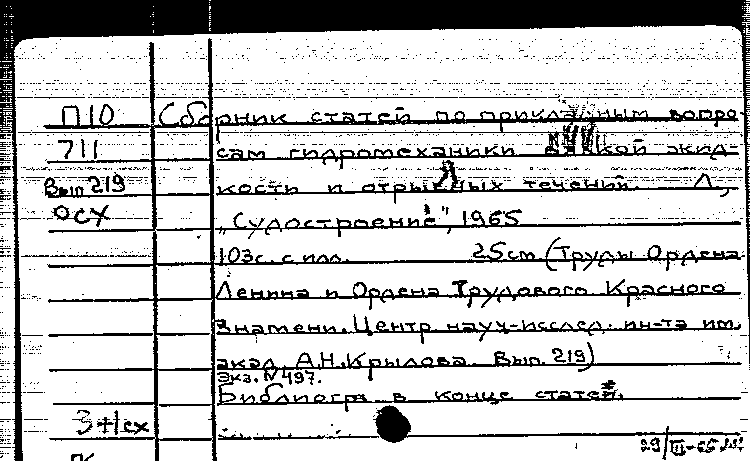 П10 Сборник статей по прикладным вопро-
711 сам гидромеханики вязкой жид-
Вып 219 кости и отрывных течений. Л.,
ОСХ „Судостроение", 1965
103с. с илл. 25см (Труды Ордена
Ленина и Ордена Трудового Красного
Знамени. Центр науч-исслед. ин-та им.
акад. А.Н.Крылова. Вып. 219)
Экз. № 497.
Библиогр в конце статей.
3+1сх
29/III-65